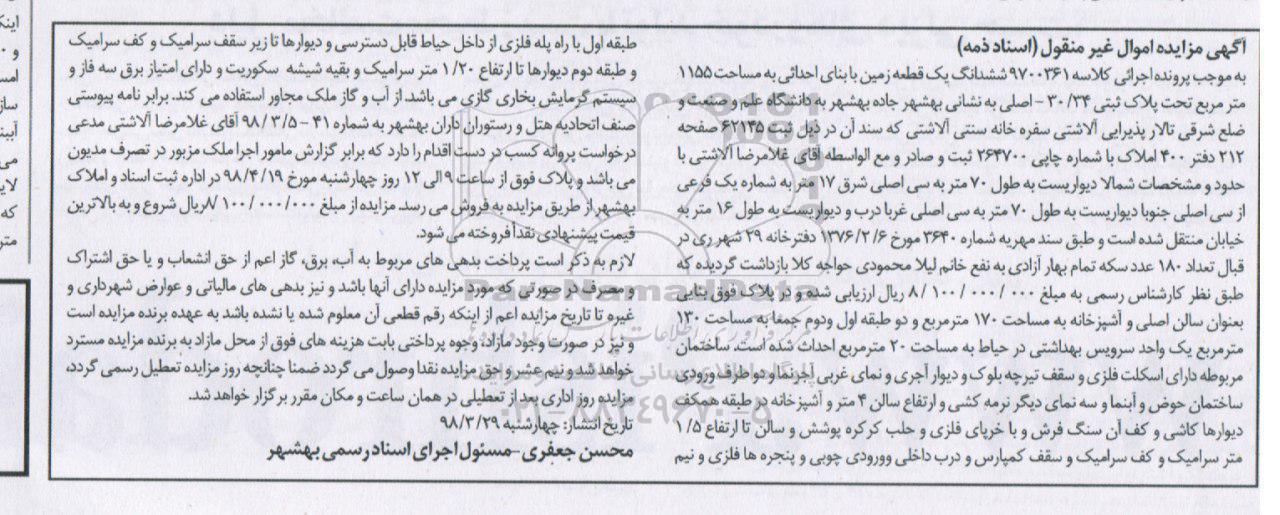 آگهی مزایده اموال غیر منقول (اسناد ذمه)
به موجب پرونده اجرائی کلاسه ۹۷۰۰۳۶۱ ششدانگ یک قطعه زمین با بنای احداثی به مساحت ۱۱۵۵
متر مربع تحت پلاک ثبتی ۳۰/۳۴ - اصلی به نشانی بهشهر جاده بهشهر به دانشگاه علم و صنعت و
ضلع شرقی تالار پذیرایی آلاشتی سفره خانه سنتی آلاشتی که سند آن در ذیل ثبت ۶۲۱۴۵ صفحه
۲۱۲ دفتر ۴۰۰ املاک با شماره چاپی ۲۶۴۷۰۰ ثبت و صادر و مع الواسطه آقای غلامرضا آلاشتی با
حدود و مشخصات شمالا دیواریست به طول ۷۰ متر به سی اصلی شرق ۱۷ متر به شماره یک فرعی
از سی اصلی جنوبا دیواریست به طول ۷۰ متر به سی اصلی غربا درب و دیواریست به طول ۱۶ متر به
خیابان منتقل شده است و طبق سند مهریه شماره ۳۶۴۰ مورخ ۱۳۷۶/۲/۶ دفترخانه ۲۹ شهر ری در
قبال تعداد ۱۸۰ عدد سکه تمام بهار آزادی به نفع خانم لیلا محمودی خواجه کلا بازداشت گردیده که
طبق نظر کارشناس رسمی به مبلغ ۸/۱۰۰/۰۰۰/۰۰۰ ریال ارزیابی شده و در پلاک فوق بنایی
بعنوان سالن اصلی و آشپزخانه به مساحت ۱۷۰ مترمربع و دو طبقه اول ودوم جمعا به مساحت ۱۳۰
مترمربع یک واحد سرویس بهداشتی در حیاط به مساحت ۲۰ مترمربع احداث شده است. ساختمان
مربوطه دارای اسکلت فلزی و سقف تیرچه بلوک و دیوار آجری و نمای غربی آجرنما و دو طرف ورودی
ساختمان حوض و آبنما و سه نمای دیگر نرمه کشی و ارتفاع سالن ۴ متر و آشپزخانه در طبقه همکف
دیوارها کاشی و کف آن سنگ فرش و با خرپای فلزی و حلب کرکره پوشش و سالن تا ارتفاع ۱/۵
متر سرامیک و کف سرامیک و سقف کمپارس و درب داخلی وورودی چوبی و پنجره ها فلزی و نیم
طبقه اول با راه پله فلزی از داخل حیاط قابل دسترسی و دیوارها تا زیر سقف سرامیک و کف سرامیک
و طبقه دوم دیوارها تا ارتفاع ۱/۲۰ متر سرامیک و بقیه شیشه سکوریت و دارای امتیاز برق سه فاز و
سیستم گرمایش بخاری گازی می باشد. از آب و گاز ملک مجاور استفاده می کند. برابر نامه پیوستی
صنف اتحادیه هتل و رستوران داران بهشهر به شماره ۴۱ - ۹۸/۳/۵ آقای غلامرضا آلاشتی مدعی
درخواست پروانه کسب در دست اقدام را دارد که برابر گزارش مامور اجرا ملک مزبور در تصرف مدیون
می باشد و پلاک فوق از ساعت ۹ الی ۱۲ روز چهارشنبه مورخ ۹۸/۴/۱۹ در اداره ثبت اسناد و املاک
بهشهر از طریق مزایده به فروش می رسد. مزایده از مبلغ ۸/۱۰۰/۰۰۰/۰۰۰ ریال شروع و به بالاترین
قیمت پیشنهادی نقداً فروخته می شود.
لازم به ذکر است پرداخت بدهی های مربوط به آب، برق، گاز اعم از حق انشعاب و یا حق اشتراک
و مصرف در صورتی که مورد مزایده دارای آنها باشد و نیز بدهی های مالیاتی و عوارض شهرداری و
غیره تا تاریخ مزایده اعم از اینکه رقم قطعی آن معلوم شده یا نشده باشد به عهده برنده مزایده است
و نیز در صورت وجود مازاد، وجوه پرداختی بابت هزینه های فوق از محل مازاد به برنده مزایده مسترد
خواهد شد و نیم عشر و حق مزایده نقدا وصول می گردد ضمنا چنانچه روز مزایده تعطیل رسمی گردد،
مزایده روز اداری بعد از تعطیلی در همان ساعت و مکان مقرر برگزار خواهد شد.
تاریخ انتشار: چهارشنبه ۹۸/۳/۲۹
محسن جعفری -مسئول اجرای اسناد رسمی بهشهر
ParsNamadData
۰۲۱-۸۸۳۴۹۶۷۰-۵